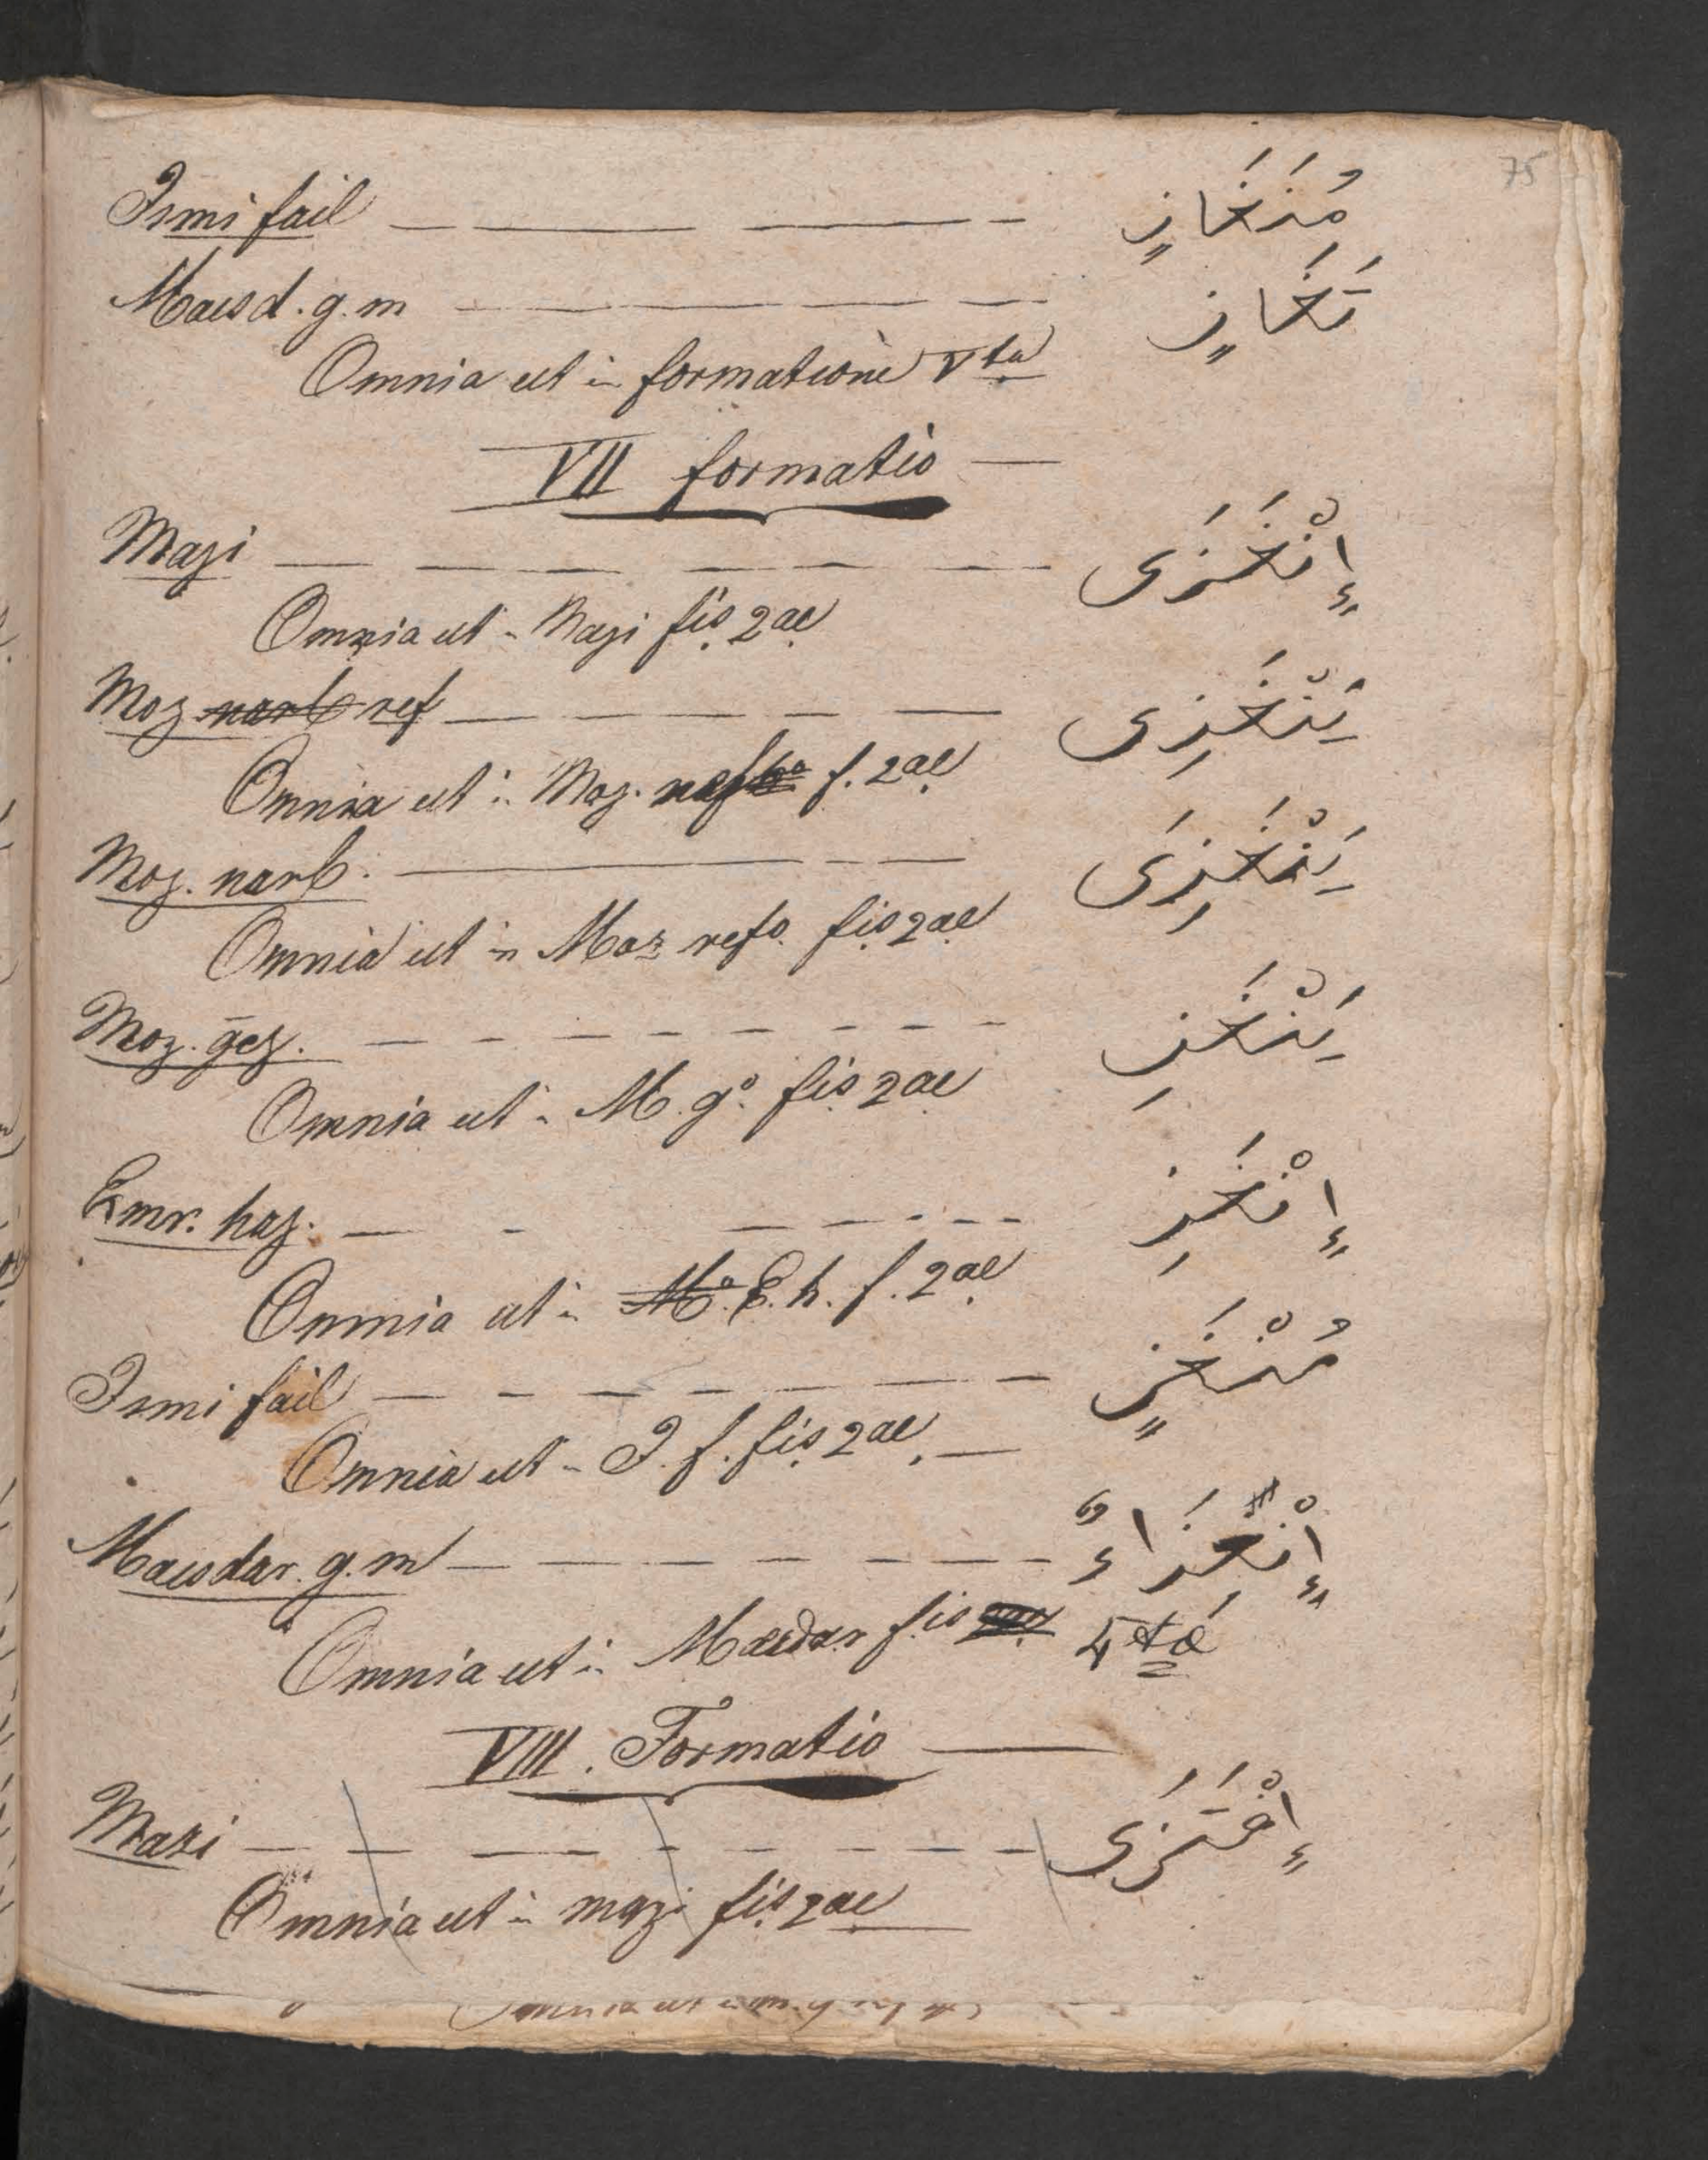 75
Ismi fail — — — — مُتَخَازٍ
Maesd. g. m — — — — تَخَازٍ
Omnia ut in formatione Vta
VII formatio —
Mazi — — — — — إِنْخَزَى
Omnia ut in Mazi fis 2ae
Moz narb ref — — — — — يَنْخَزِى
Omnia ut in Moz. f. 2ae
Moz. narb. — — — يَنْخَزِىَ
Omnia ut in Moz refo. fis 2ae
Moz. gez. — — — — — يَنْخَزِ
Omnia ut in M. go. fis 2ae
Emr. haz. — — — — — إِنْخَزِ
Omnia ut in Mo. E. h. f. 2ae
Ismi fail — — — — — مُنْخَزٍ
Omnia ut in I. f. fis 2ae. —
Maesdar. g. m — — — — — إِنْخِزَاءٌ
Omnia ut in Maesdar fis 4tae
VIII. Formatio —
Mazi — — — — — إِخْتَزَى
Omnia ut in mazi fis 2ae